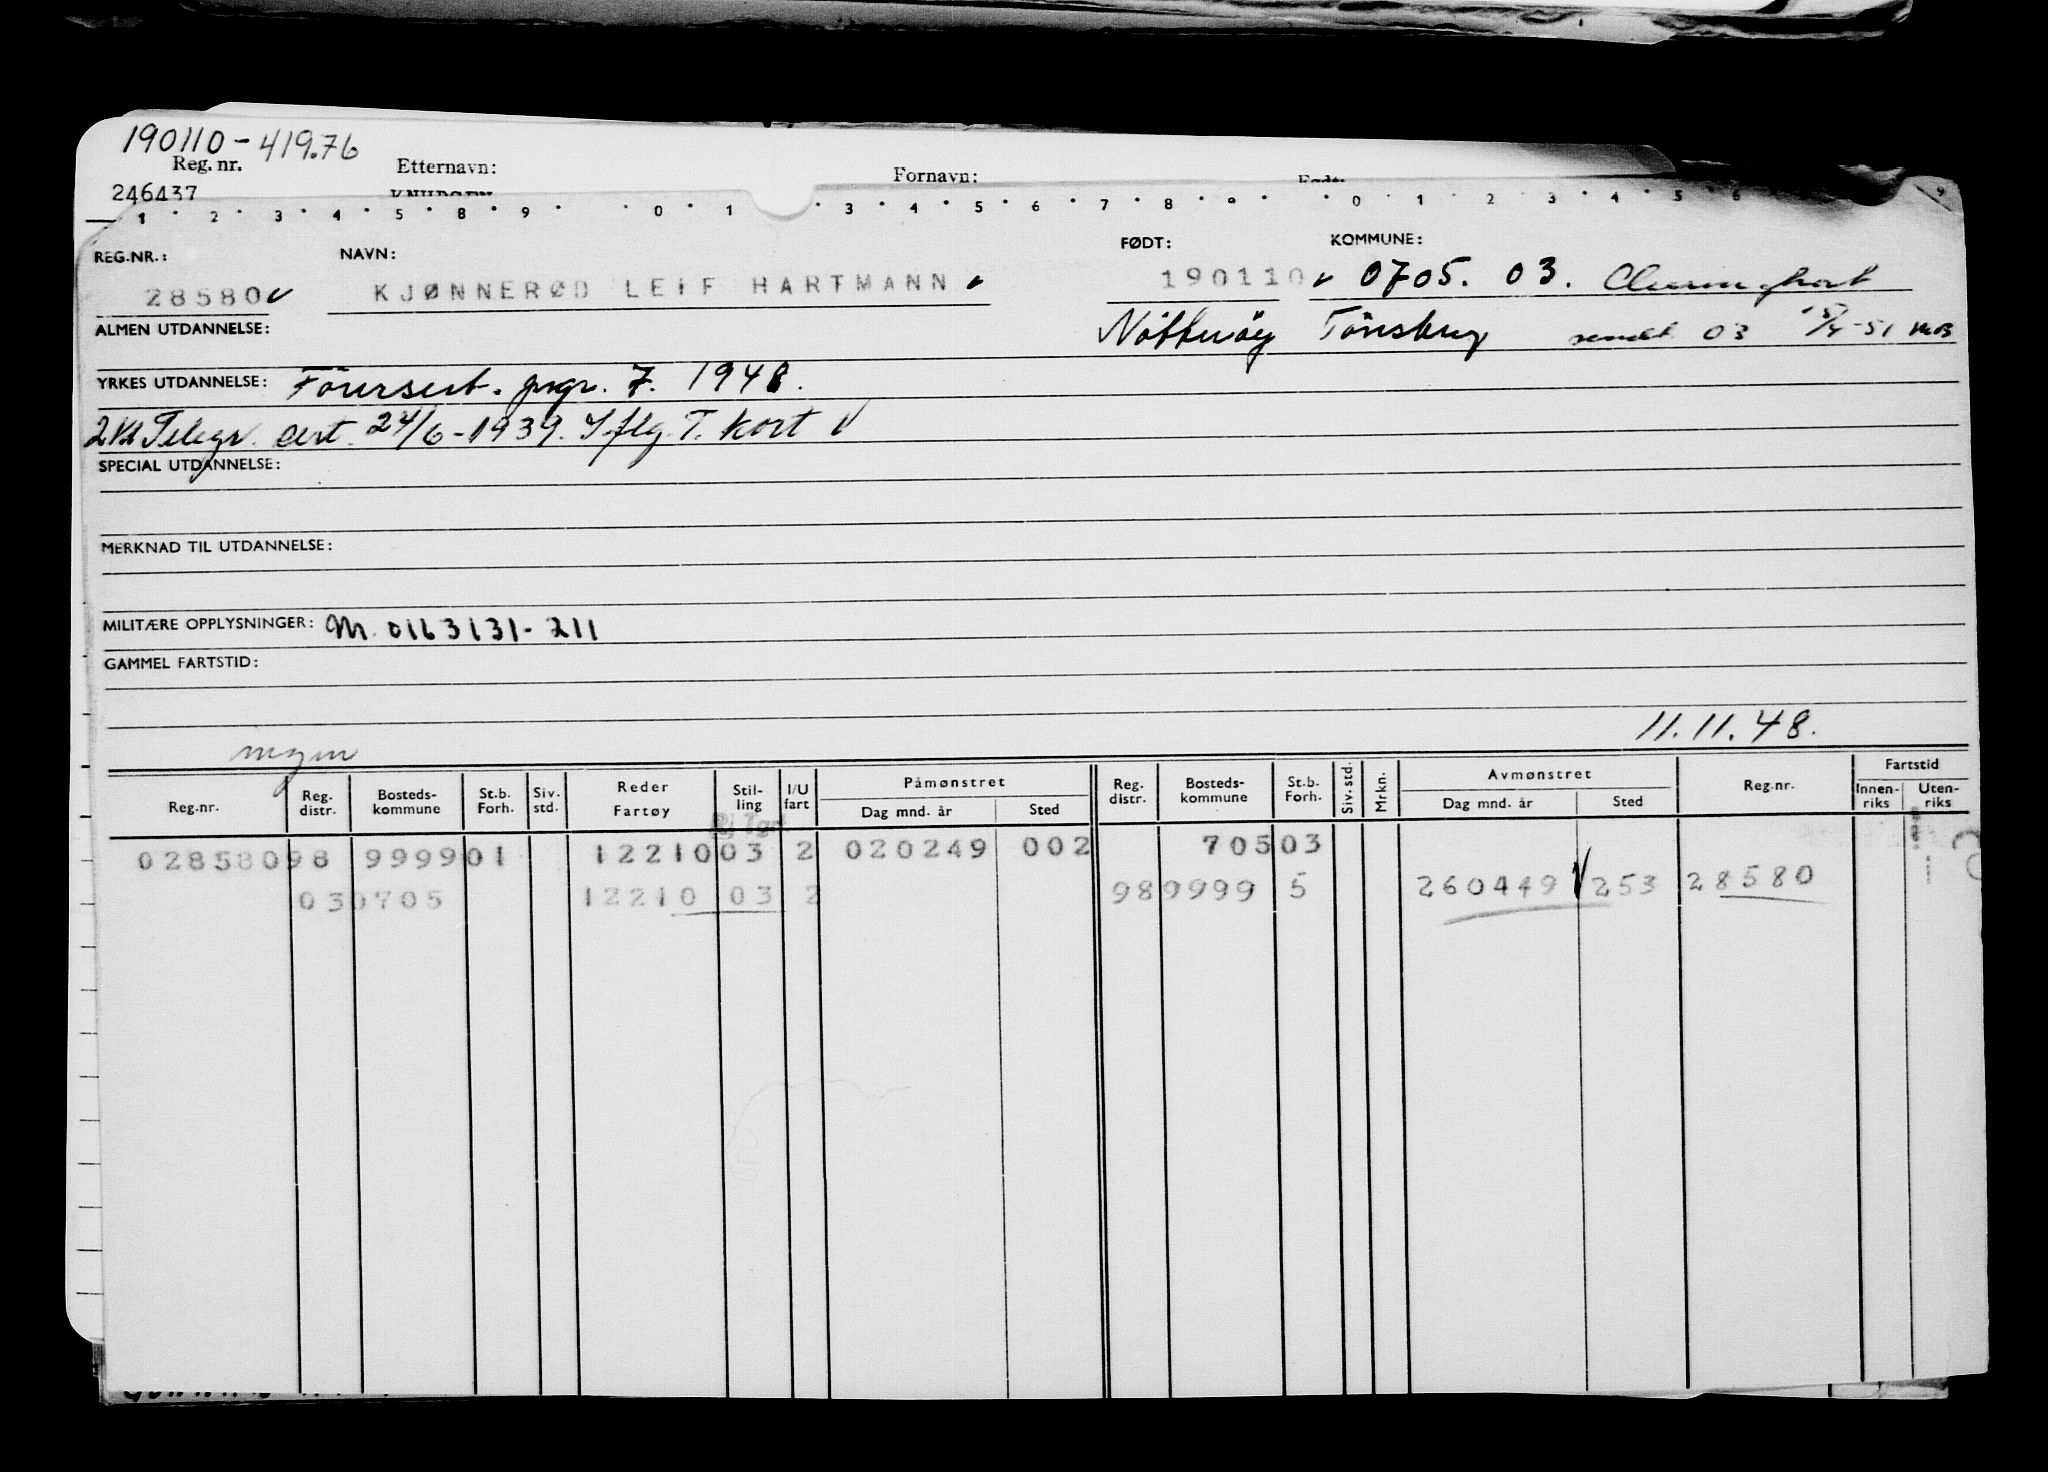 190110-419.76
Reg. nr. Etternavn: Fornavn: Født:
246437 KNUDSEN
1 2 3 4 5 8 9 0 1 3 4 5 6 7 8 9 0 1 2 3 4 5 6 9
REG.NR.: NAVN: FØDT: KOMMUNE:
28580 KJØNNERØD LEIF HARTMANN 190110 0705. 03.
ALMEN UTDANNELSE: Nötteröy Tönsberg sendt 03 15/4-51
YRKES UTDANNELSE: Förersert. pngr. 7. 1948.
2 Kl Telegr. Cert. 24/6-1939. Iflg. T. Kort
SPECIAL UTDANNELSE:
MERKNAD TIL UTDANNELSE:
MILITÆRE OPPLYSNINGER: M. 0163131-211
GAMMEL FARTSTID:
11.11.48.
Reg.nr. Reg. distr. Bosteds-kommune St.b. Forh. Siv. std. Reder Fartøy Stil-ling I/U fart Påmønstret Dag mnd. år Sted Reg. distr. Bosteds-kommune St.b. Forh. Siv. std. Mrkn. Avmønstret Dag mnd. år Sted Reg.nr. Fartstid Innen-riks Uten-riks
028580 98 9999 01 12210 03 2 020249 002 705 03
03 0705 12210 03 2 98 9999 5 260449 253 28580